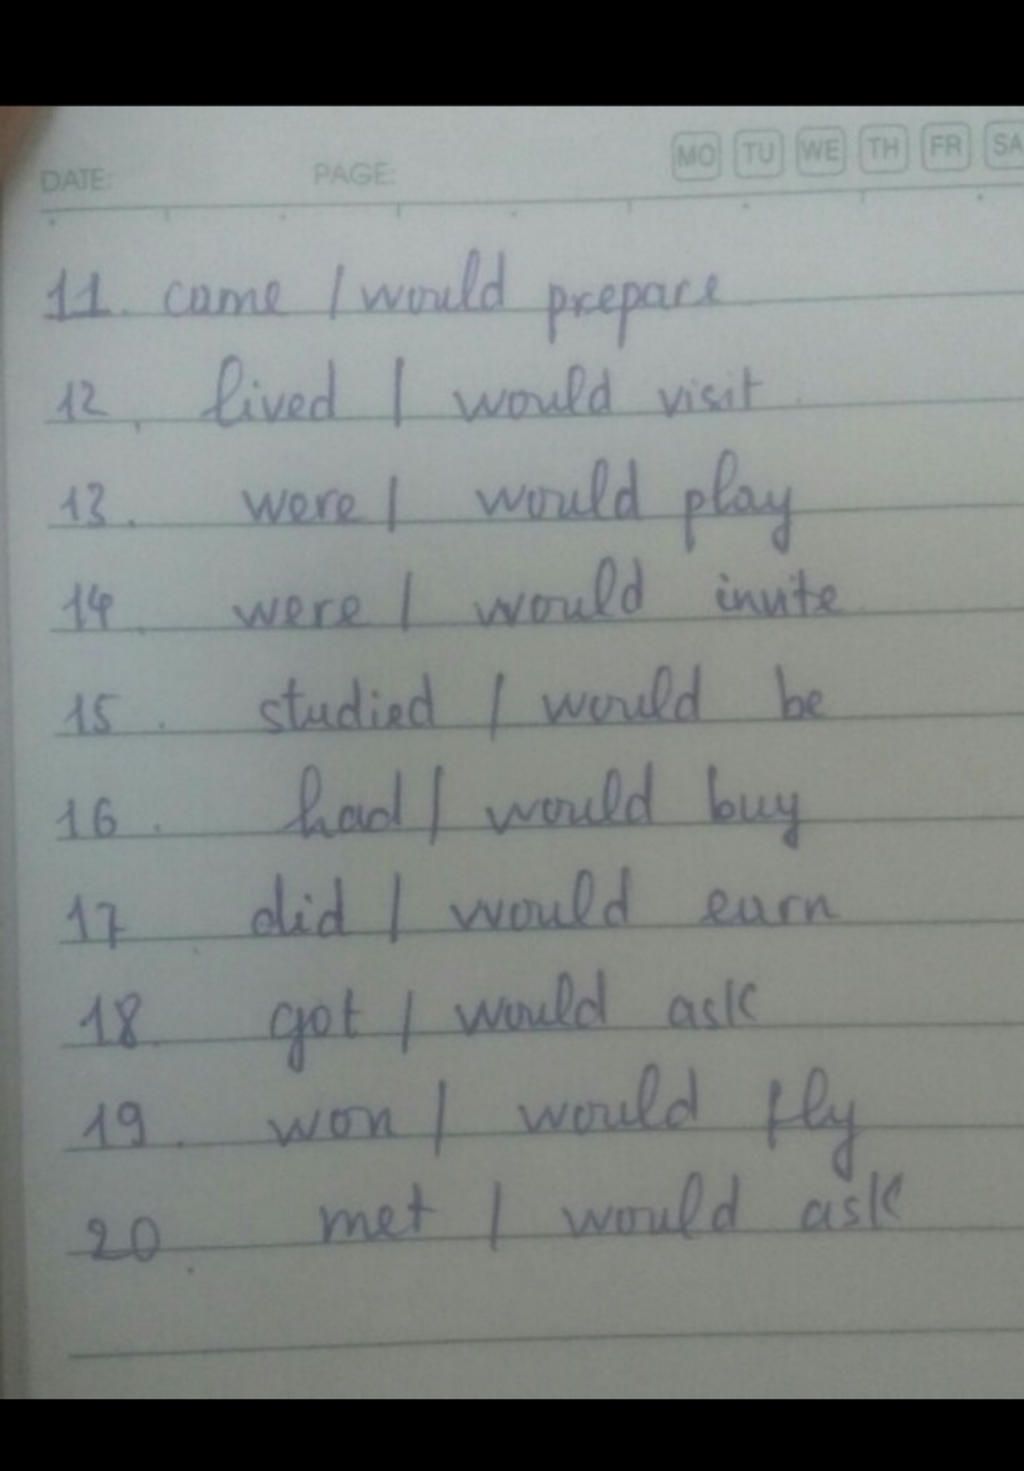 DATE: PAGE: MO TU WE TH FR SA
11. came / would prepare
12. lived / would visit
13. were / would play
14. were / would invite
15. studied / would be
16. had / would buy
17. did / would earn
18. got / would ask
19. won / would fly
20. met / would ask